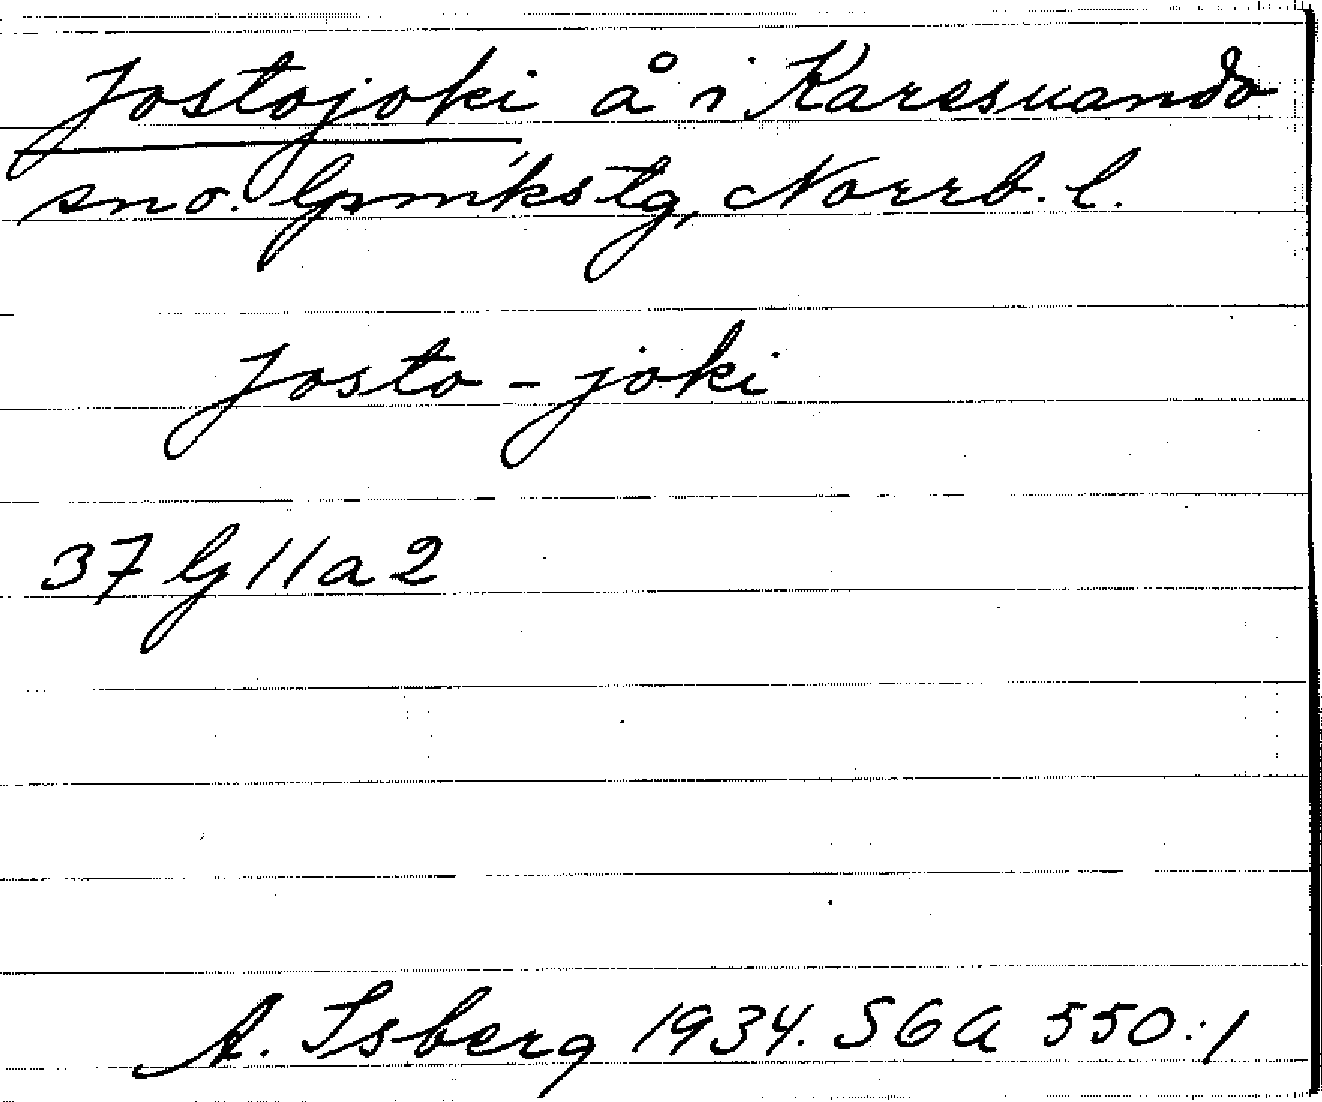 Jostojoki å i Karesuando
sn o. lpmkstg, Norrb. l.
Josto - joki
37 G 11 a 2
A. Isberg 1934. SGA 550:1